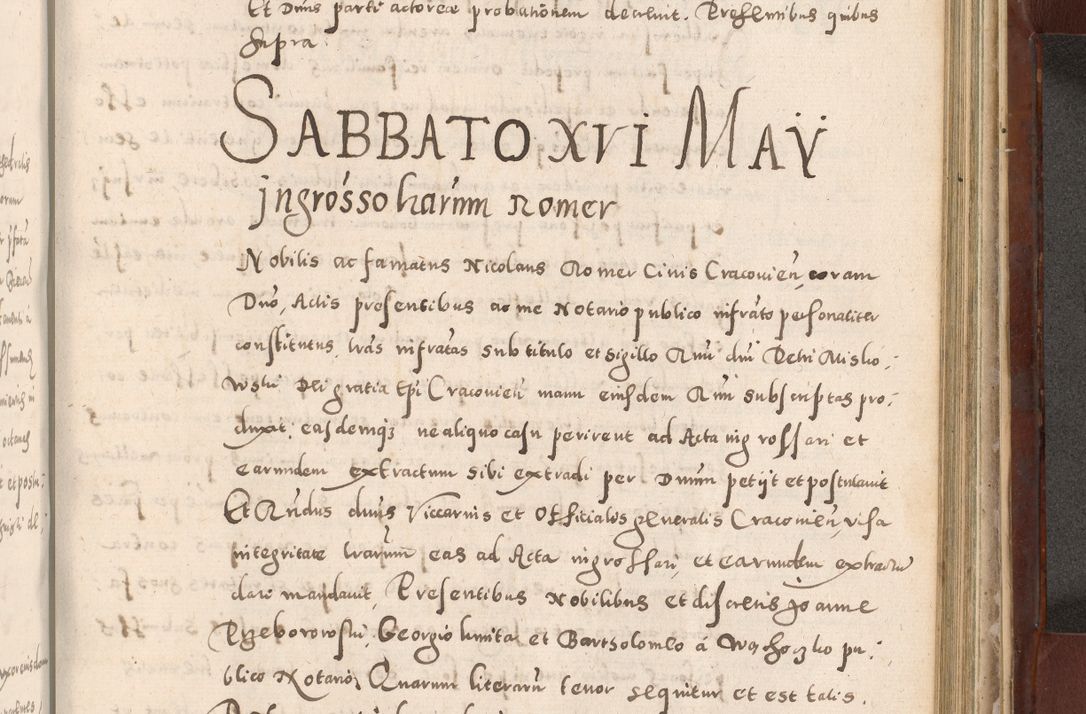 Et Dnus parti actoreae probationem decrevit. Presentibus quibus
supra.
SABBATO XVI MAŸ
Ingrossoharum Romer
Nobilis ac famatus Nicolaus Romer Civis Cracovien, coram
Dno, Actis presentibus ac me Notario publico infrato personaliter
constitutus, lras infratas sub titulo et sigillo Rmi dni Petri Misko-
wski Dei gratia Epi Cracovien manu eiusdem Rmi subscriptas pro-
duxit: easdemq3 ne aliquo casu perirent ad Acta ingrossari et
earumdem extractum sibi extradi per Dnum petijt et postulavit
Et Rndus dnus Viccarius et Officialis generalis Cracovien, visa
integritate lrarum eas ad Acta ingrossari, et earumdem extractum
dari mandavit, Presentibus Nobilibus et discretis Joanne
Georgio et Bartholomeo á pu-
blico Notario, Quarum literarum tenor sequitur et est talis.